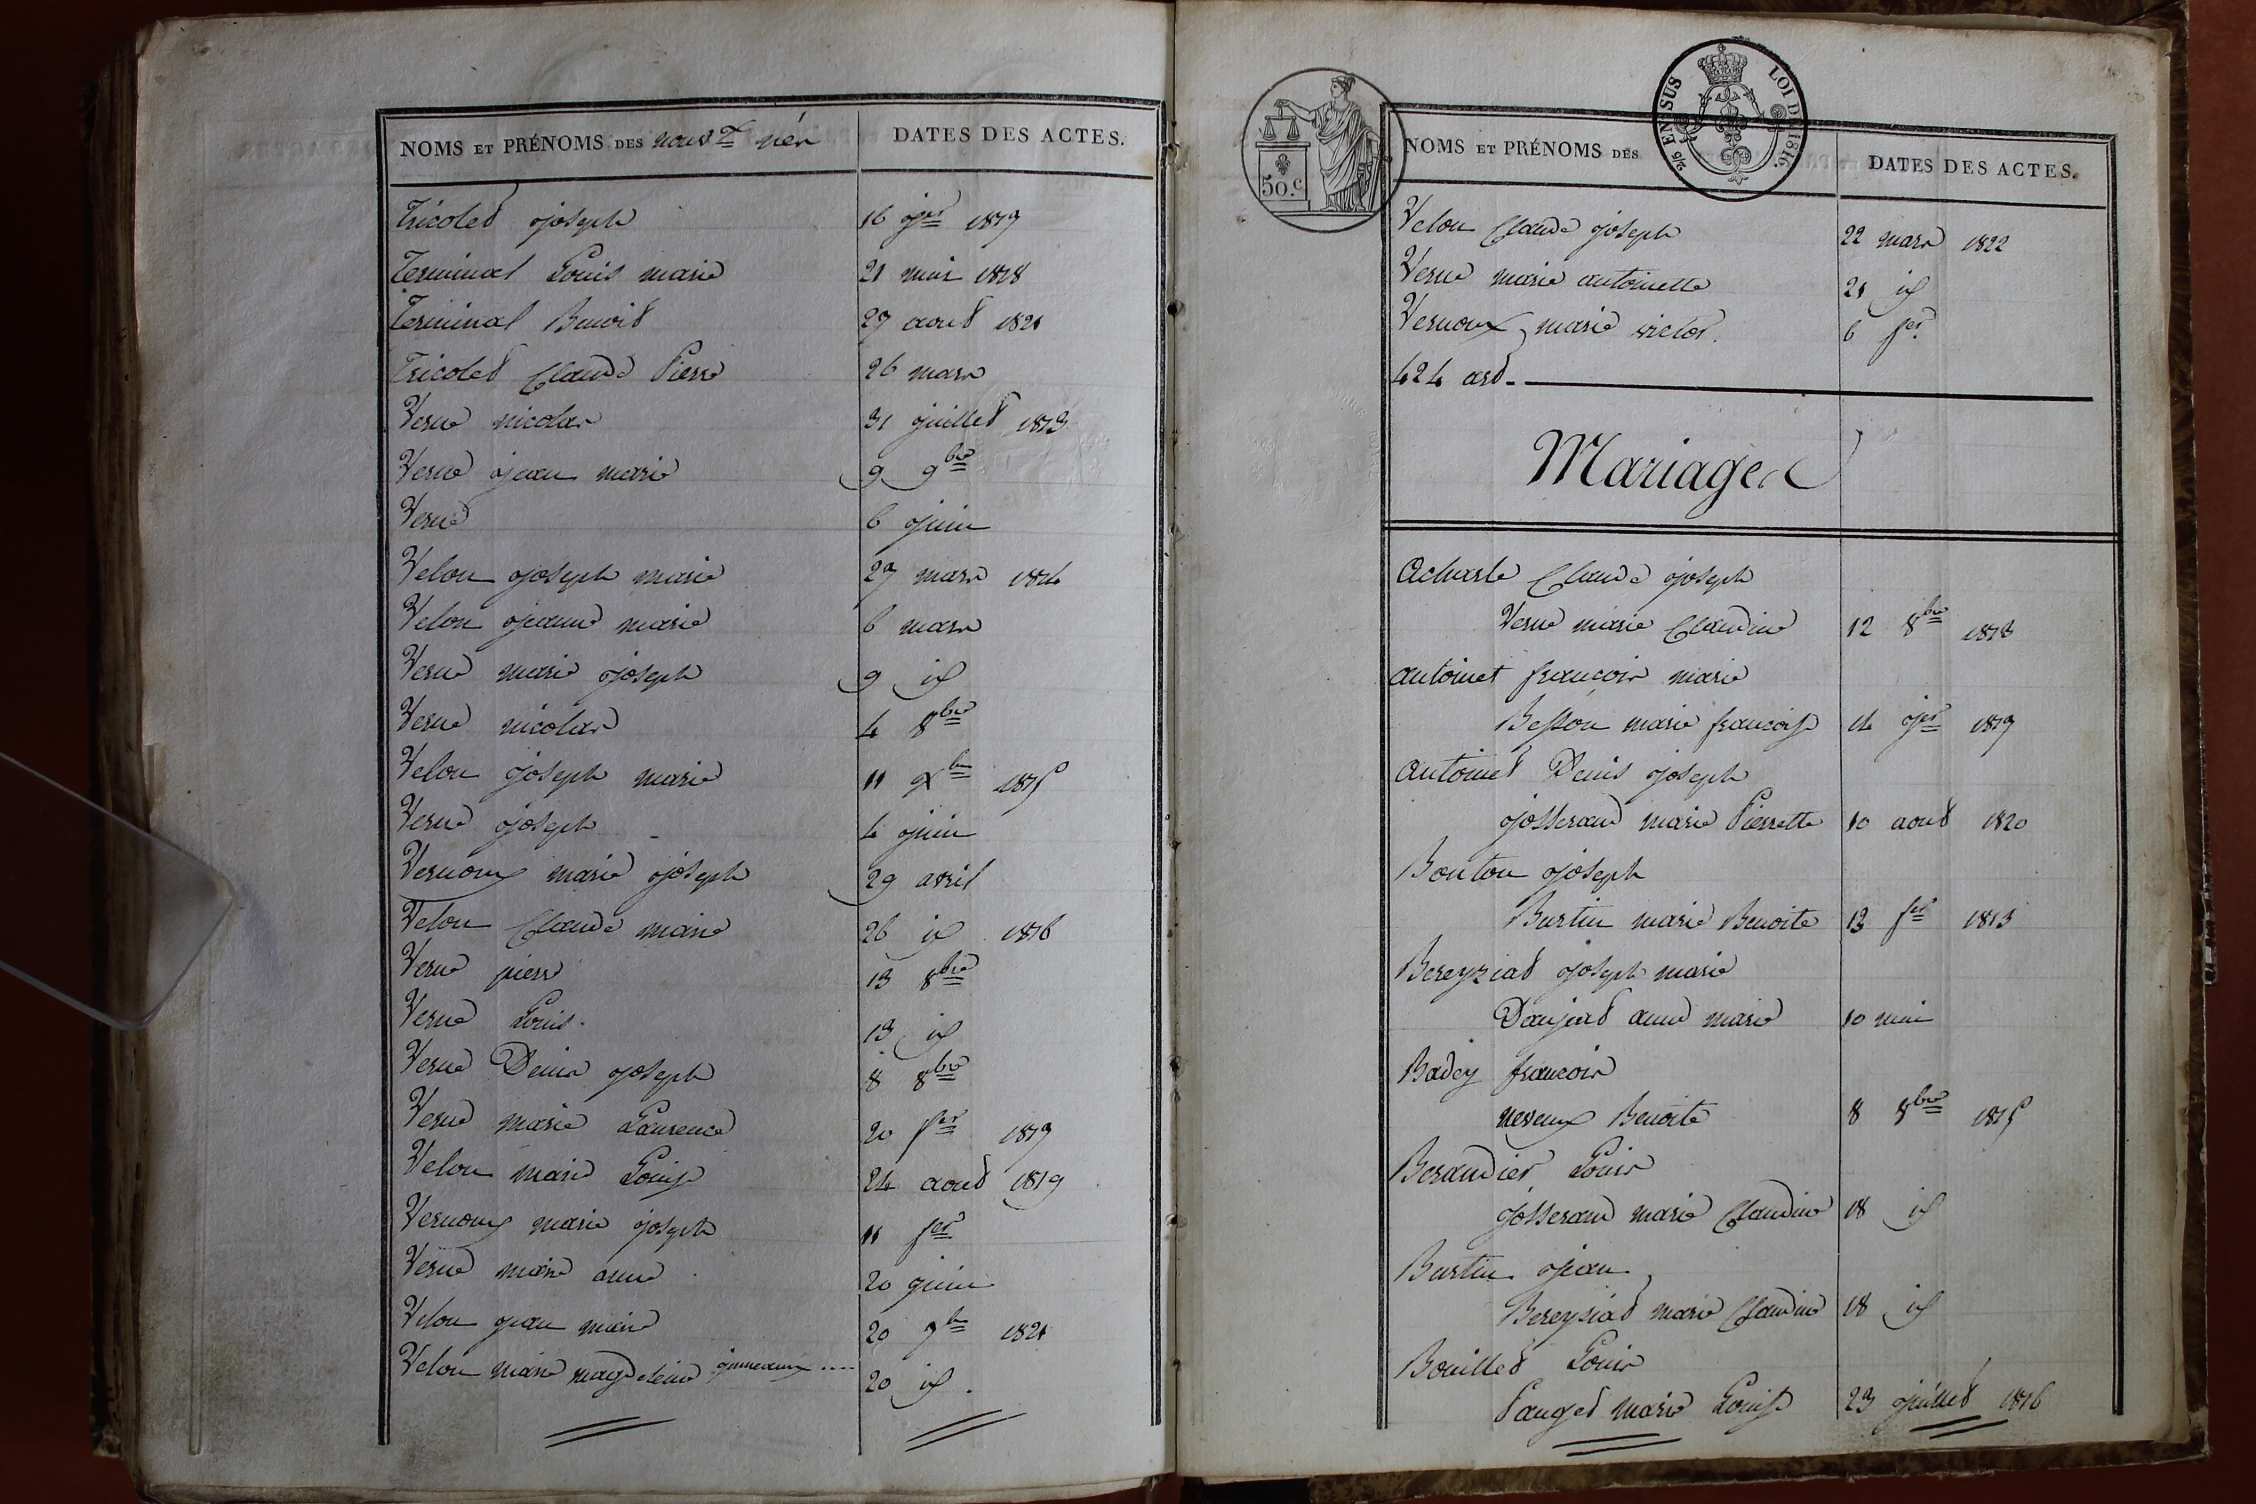 NOMS ET PRÉNOMS DES nouv.x nés
DATES DES ACTES.
Tricolet joseph 16 jer 1819
Terminal Louis marie 21 mai 1818
Terminal Benoit 27 aout 1821
Tricolet Claude Pierre 26 mars
Verne nicolas 31 juillet 1813
Verne jean marie 9 9bre
Verne 6 juin
Velon joseph marie 27 mars 1814
Velon jeanne marie 6 mars
Verne marie joseph 9 id
Verne nicolas 4 8bre
Velon joseph marie 11 Xbre 1815
Verne joseph 4 juin
Vernoux marie joseph 29 avril
Velon Claude marie 26 id 1816
Verne pierre 13 8bre
Verne Louis 13 id
Verne Denis joseph 8 8bre
Verne marie Laurence 20 fer 1819
Velon marie Louise 24 aout 1819
Vernoux marie joseph 11 fer
Verne marie anne 20 juin
Velon jean marie 20 7bre 1821
Velon marie magdeleine jumeaux .... 20 id.
50.c
2/5 EN SUS LOI DE 1816.
NOMS ET PRÉNOMS DES
DATES DES ACTES.
Velon Claude joseph 22 mars 1822
Verne marie antoinette 21 id
Vernoux marie victor. 6 fer.
424 art.
Mariages
Acharle Claude joseph
Verne marie Claudine 12 8bre 1813
antoinet françois marie
Besson marie françoise 14 jer 1819
antoinet Denis joseph
josserand marie Pierrette 10 aout 1820
Bonton joseph
Burtin marie Benoite 13 fer 1813
Bereyziat joseph marie
Daujat anne marie 10 mai
Badey françois
neveux Benoite 8 8bre 1815
Beraudier Louis
josserand marie Claudine 18 id
Burtin jean
Bereysiat marie Claudine 18 id
Bouillet Louis
Panget marie Louise 23 juillet 1816